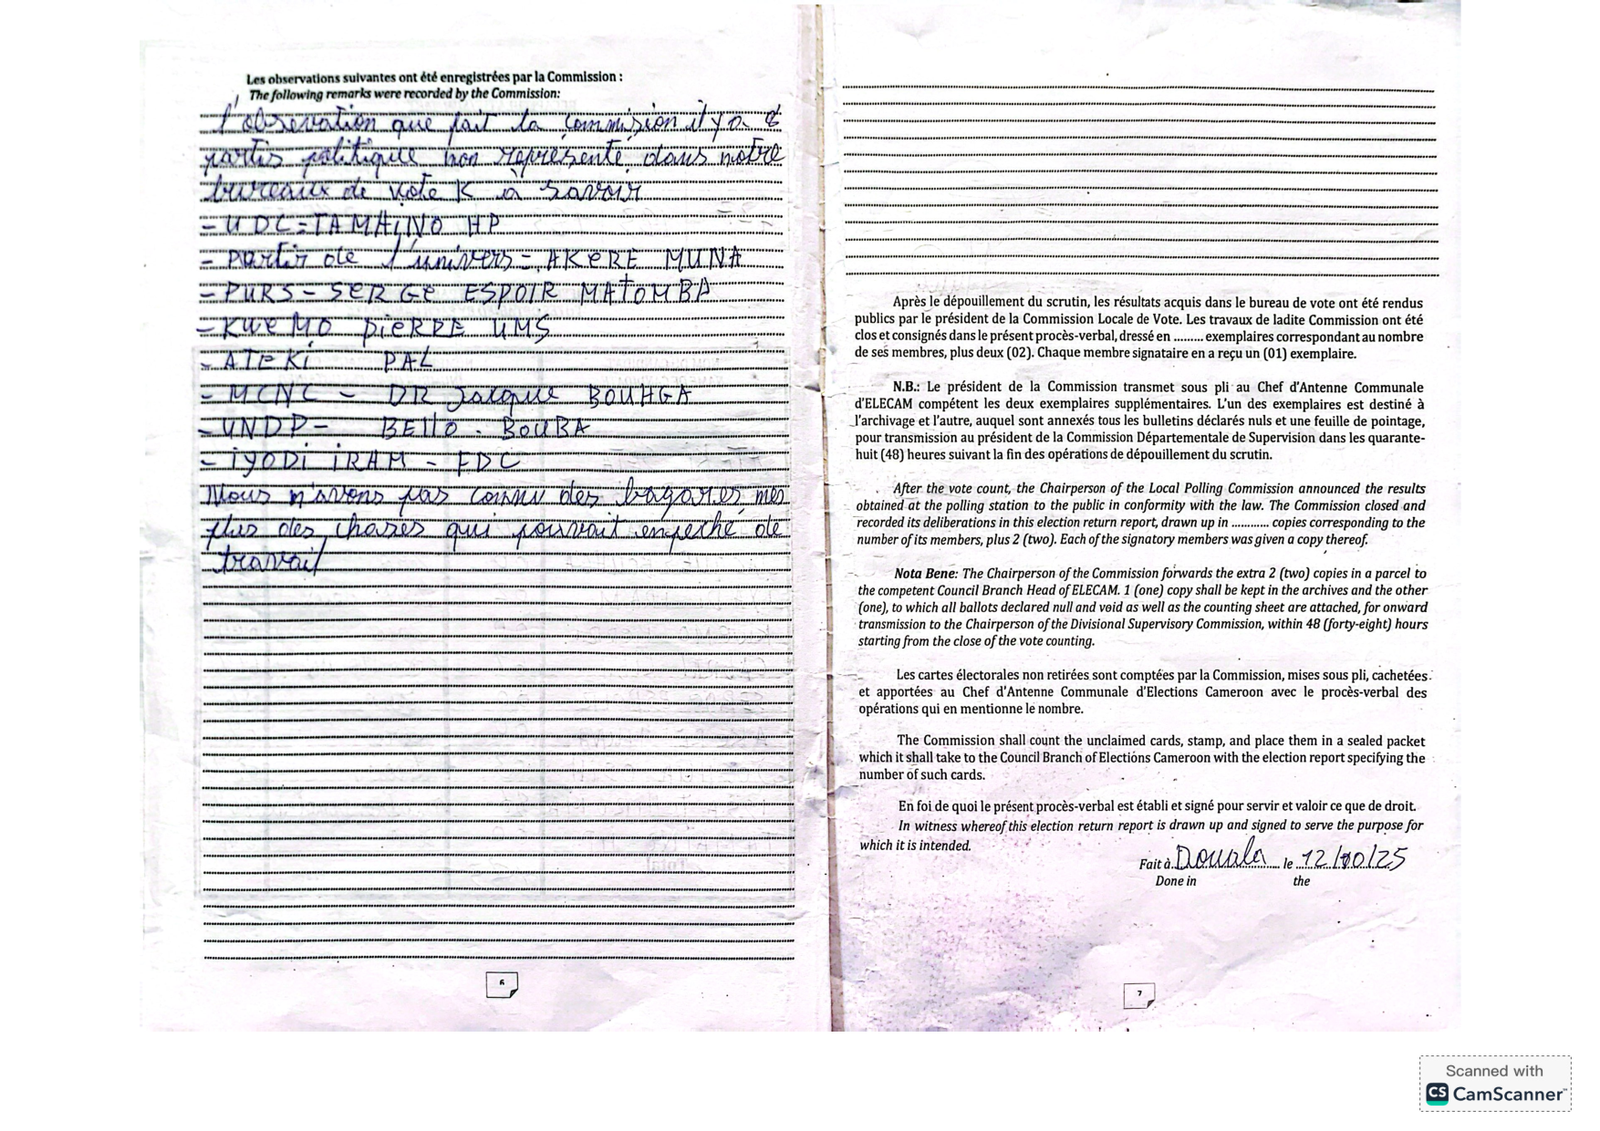 Les observations suivantes ont été enregistrées par la Commission :
The following remarks were recorded by the Commission:
l'observation que fait la commission il y a 8
partis politique non représenté dans notre
bureaux de vote K à savoir
- UDC = TAMAINO HP
- Partir de l'univers - AKERE MUNA
- PURS - SERGE ESPOIR MATOMBA
- KWEMO PIERRE UMS
- ATEKI PAL
- MCNC - DR Jacque BOUHGA
- UNDP - BELLO. BOUBA
- iYODi iRAM - FDC
Nous n'avons pas connu des bagares mes
plus des choses qui pouvait empeché de
travail
6
Après le dépouillement du scrutin, les résultats acquis dans le bureau de vote ont été rendus
publics par le président de la Commission Locale de Vote. Les travaux de ladite Commission ont été
clos et consignés dans le présent procès-verbal, dressé en ......... exemplaires correspondant au nombre
de ses membres, plus deux (02). Chaque membre signataire en a reçu un (01) exemplaire.
N.B.: Le président de la Commission transmet sous pli au Chef d'Antenne Communale
d'ELECAM compétent les deux exemplaires supplémentaires. L'un des exemplaires est destiné à
l'archivage et l'autre, auquel sont annexés tous les bulletins déclarés nuls et une feuille de pointage,
pour transmission au président de la Commission Départementale de Supervision dans les quarante-
huit (48) heures suivant la fin des opérations de dépouillement du scrutin.
After the vote count, the Chairperson of the Local Polling Commission announced the results
obtained at the polling station to the public in conformity with the law. The Commission closed and
recorded its deliberations in this election return report, drawn up in ............ copies corresponding to the
number of its members, plus 2 (two). Each of the signatory members was given a copy thereof.
Nota Bene: The Chairperson of the Commission forwards the extra 2 (two) copies in a parcel to
the competent Council Branch Head of ELECAM. 1 (one) copy shall be kept in the archives and the other
(one), to which all ballots declared null and void as well as the counting sheet are attached, for onward
transmission to the Chairperson of the Divisional Supervisory Commission, within 48 (forty-eight) hours
starting from the close of the vote counting.
Les cartes électorales non retirées sont comptées par la Commission, mises sous pli, cachetées
et apportées au Chef d'Antenne Communale d'Elections Cameroon avec le procès-verbal des
opérations qui en mentionne le nombre.
The Commission shall count the unclaimed cards, stamp, and place them in a sealed packet
which it shall take to the Council Branch of Elections Cameroon with the election report specifying the
number of such cards.
En foi de quoi le présent procès-verbal est établi et signé pour servir et valoir ce que de droit.
In witness whereof this election return report is drawn up and signed to serve the purpose for
which it is intended.
Fait à Douala le 12/10/25
Done in the
7
Scanned with
CS CamScanner